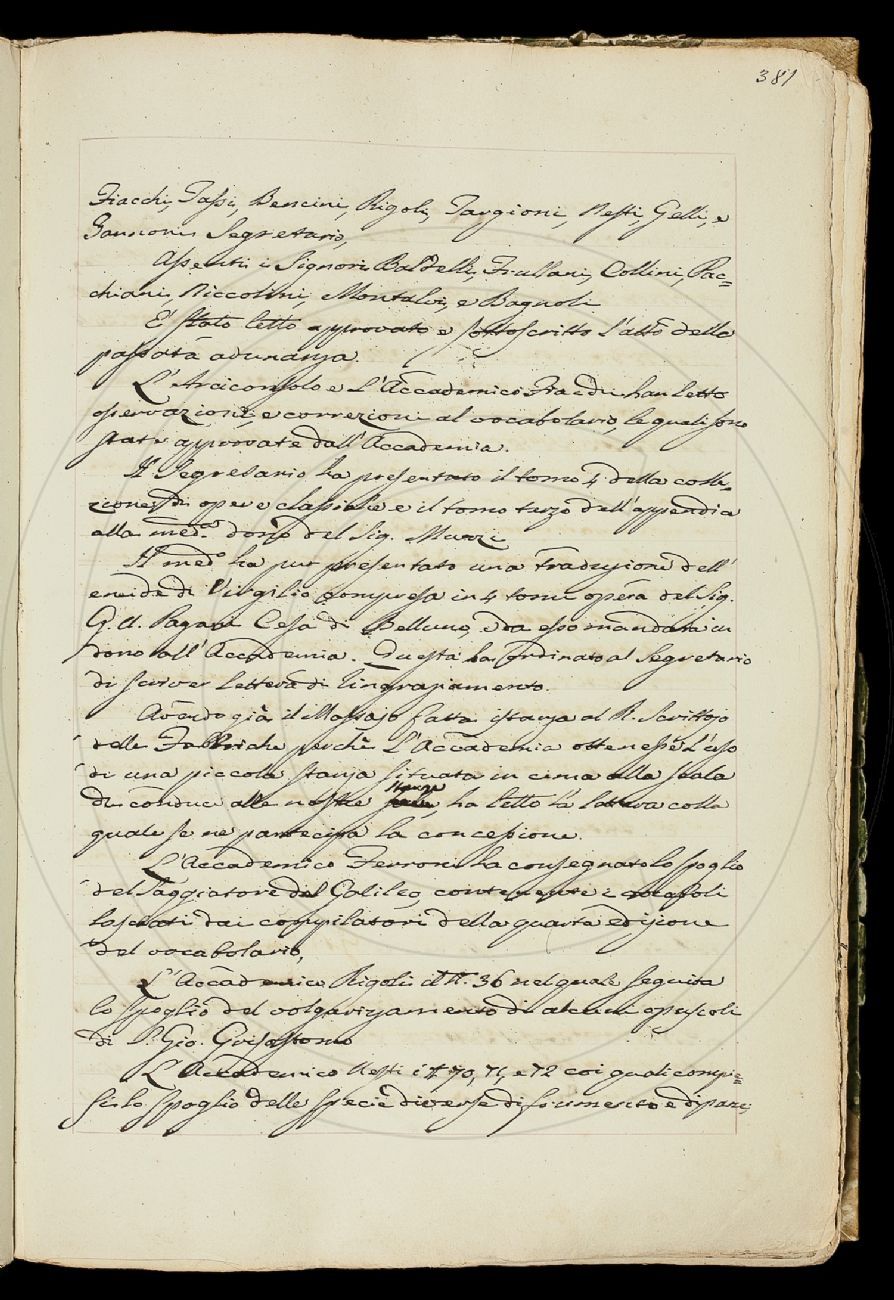 381
Fiacchi, Tassi, Bencini, Rigoli, Targioni, Nesti, Gelli, e
Zannoni Segretario,
Assenti i Signori Baldelli, Frullani, Collini, Pac=
chiani, Niccolini, Montalvi, e Bagnoli
E' stato letto approvato e sottoscritto l'atto della
passata adunanza.
L'Arciconsolo e l'Accademico Fiacchi han letto
osservazioni, e correzioni al vocabolario, le quali sono
state approvate dall'Accademia.
Il Segretario ha presentato il tomo 4 della colle=
zione di opere classiche e il tomo terzo dell'appendice
alla medª. dono del Sig. Muzzi
Il medº ha pur presentato una traduzione dell'
eneide di Virgilio compresa in 4 tomi opera del Sig.
Pagani Cesa di Belluno, e da esso mandata in
dono all'Accademia. Questa ha ordinato al Segretario
di scriver lettera di ringraziamento.
Avendo già il Massajo fatta istanza al R. Scrittojo
delle Fabbriche perchè l'Accademia ottenesse l'uso
di una piccola stanza situata in cima alla scala
che conduce alle nostre stanze, ha letto la lettera colla
quale se ne partecipa la concessione.
L'Accademico Ferroni ha consegnato lo spoglio
del Saggiatore del Galileo, contenente i vocaboli
lasciati dai compilatori della quarta edizione
del vocabolario,
L'Accademico Rigoli il N. 36 nel quale seguita
lo spoglio del volgarizzamento di alcuni opuscoli
di S. Gio. Grisostomo
L'Accademico Nesti i N. 70, 71, e 72 coi quali compi=
sce lo spoglio delle specie diverse di frumento e di pane,